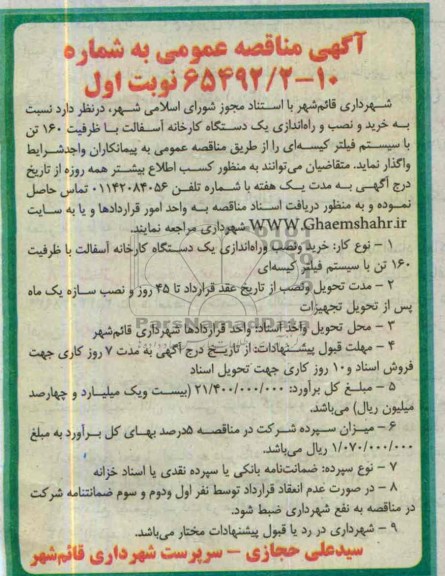 آگهی مناقصه عمومی به شماره
۱۰-۶۵۴۹۲/۲ نوبت اول
شهرداری قائم‌شهر با استناد مجوز شورای اسلامی شهر، درنظر دارد نسبت
به خرید و نصب و راه‌اندازی یک دستگاه کارخانه آسفالت با ظرفیت ۱۶۰ تن
با سیستم فیلتر کیسه‌ای را از طریق مناقصه عمومی به پیمانکاران واجدشرایط
واگذار نماید. متقاضیان می‌توانند به منظور کسب اطلاع بیشتر همه روزه از تاریخ
درج آگهی به مدت یک هفته با شماره تلفن ۰۱۱۴۲۰۸۴۰۵۶ تماس حاصل
نموده و به منظور دریافت اسناد مناقصه به واحد امور قراردادها و یا به سایت
WWW.Ghaemshahr.ir شهرداری مراجعه نمایند.
۱ – نوع کار: خرید ونصب وراه‌اندازی یک دستگاه کارخانه آسفالت با ظرفیت
۱۶۰ تن با سیستم فیلتر کیسه‌ای
۲ – مدت تحویل ونصب از تاریخ عقد قرارداد تا ۴۵ روز و نصب سازه یک ماه
پس از تحویل تجهیزات
۳ – محل تحویل واخذ اسناد: واحد قراردادها شهرداری قائم‌شهر
۴ – مهلت قبول پیشنهادات: از تاریخ درج آگهی به مدت ۷ روز کاری جهت
فروش اسناد و۱۰ روز کاری جهت تحویل اسناد
۵ – مبلغ کل برآورد: ۲۱/۴۰۰/۰۰۰/۰۰۰ (بیست ویک میلیارد و چهارصد
میلیون ریال) می‌باشد.
۶ – میزان سپرده شرکت در مناقصه ۵درصد بهای کل برآورد به مبلغ
۱/۰۷۰/۰۰۰/۰۰۰ ریال می‌باشد.
۷ – نوع سپرده: ضمانت‌نامه بانکی یا سپرده نقدی یا اسناد خزانه
۸ – در صورت عدم انعقاد قرارداد توسط نفر اول ودوم و سوم ضمانتنامه شرکت
در مناقصه به نفع شهرداری ضبط شود.
۹ – شهرداری در رد یا قبول پیشنهادات مختار می‌باشد.
سیدعلی حجازی – سرپرست شهرداری قائم‌شهر